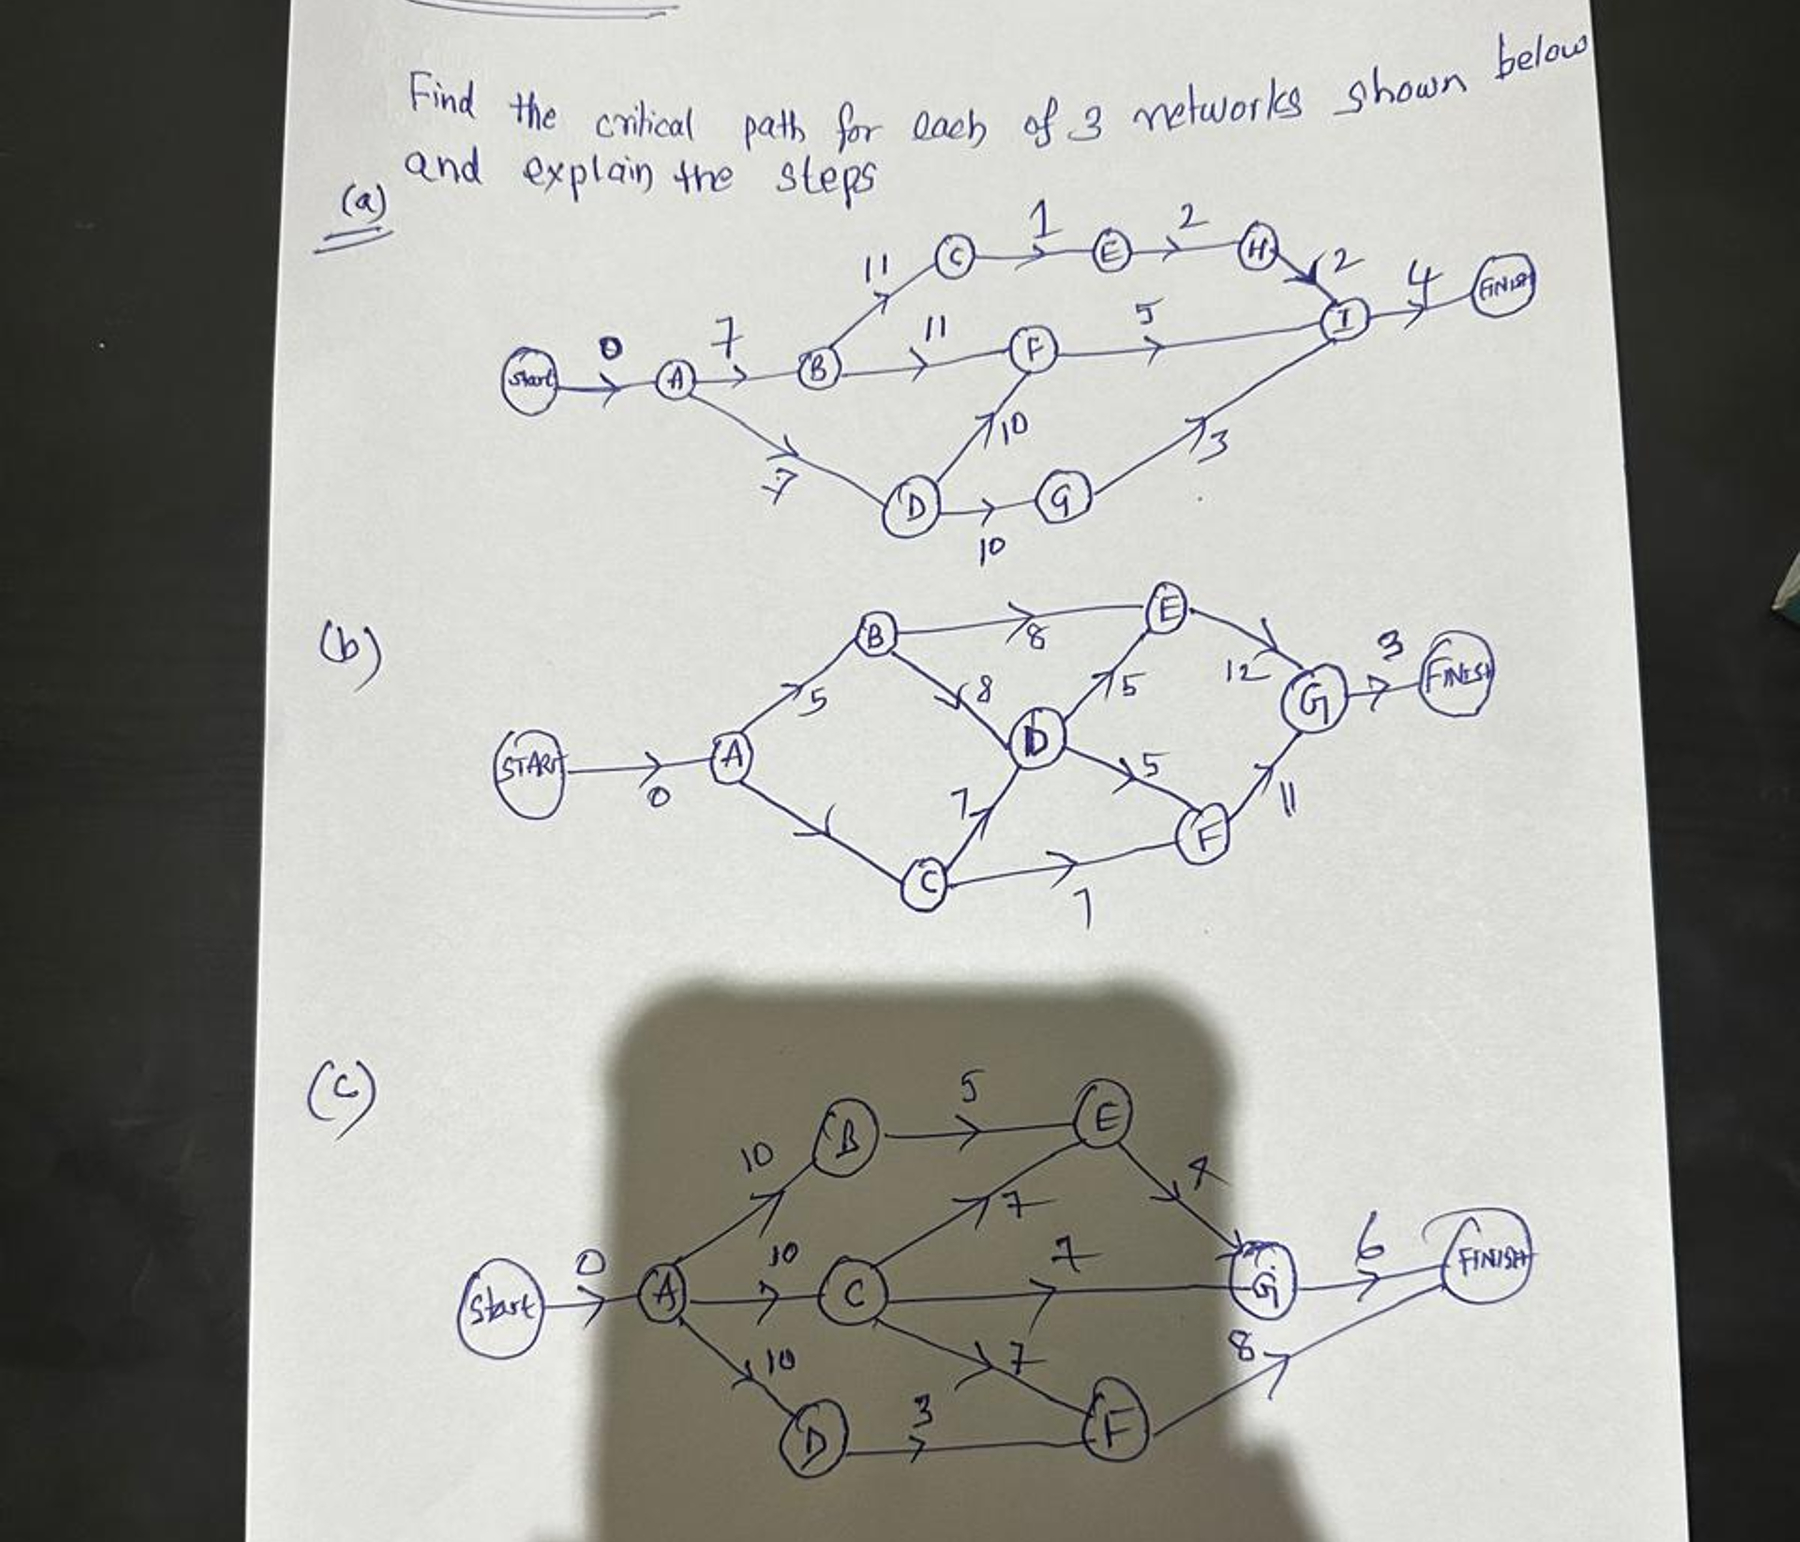 Find the critical path for each of 3 networks shown below
and explain the steps
(a)
1 2
C E H
11 2 4 FINISH
5
0 7 11 F I
Start A B
10 3
7
D G
10
(b)
B 8 E
3
5 8 5 12 G FINISH
START A D
0 5
7 11
F
C
7
(c)
5
B E
10
7
0 10 7 6 FINISH
Start A C G
10 7 8
3
D F